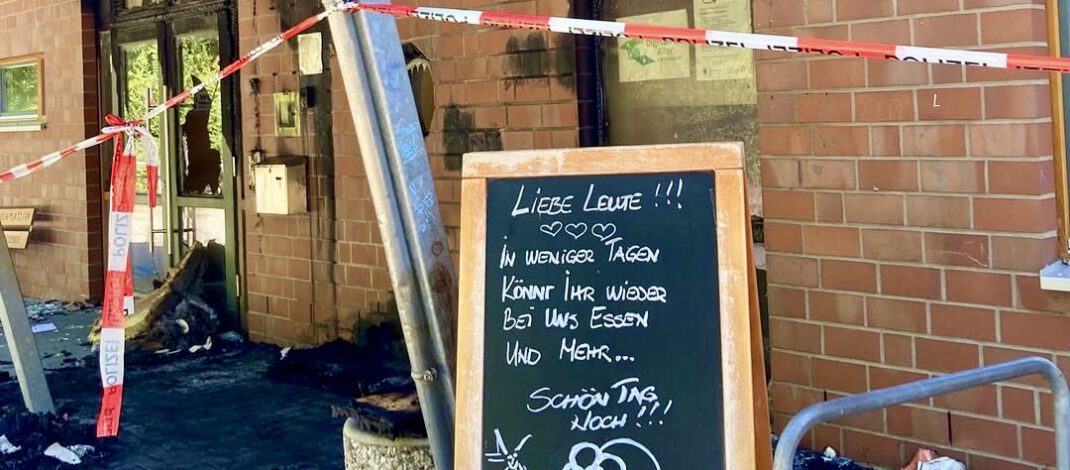 POLIZEI
POLIZEI
LIEBE LEUTE !!!
IN WENIGER TAGEN
KÖNNT IHR WIEDER
BEI UNS ESSEN
UND MEHR...
SCHÖN TAG
NOCH!!!
POLIZEI
POLIZEI